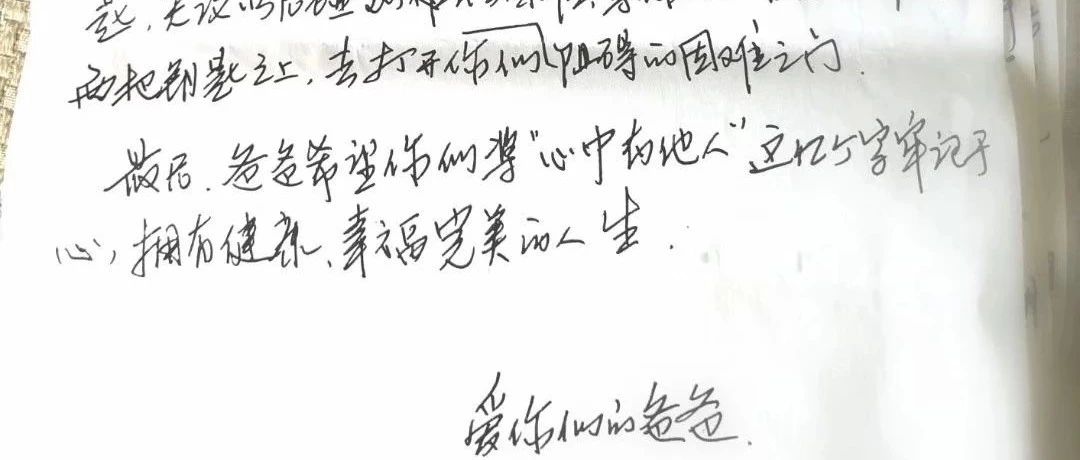 匙,无论以后
两把钥匙之上,去打开你们阻碍的困难之门.
最后.爸爸希望你们将“心中有他人”这几个字牢记于
心,拥有健康、幸福完美的人生.
爱你们的爸爸.